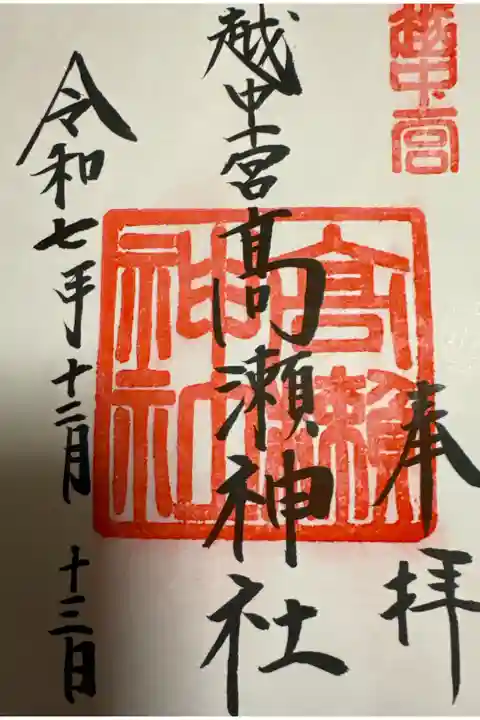 越中一宮
奉拝
越中一宮髙瀬神社
高瀬神社
令和七年十二月十三日